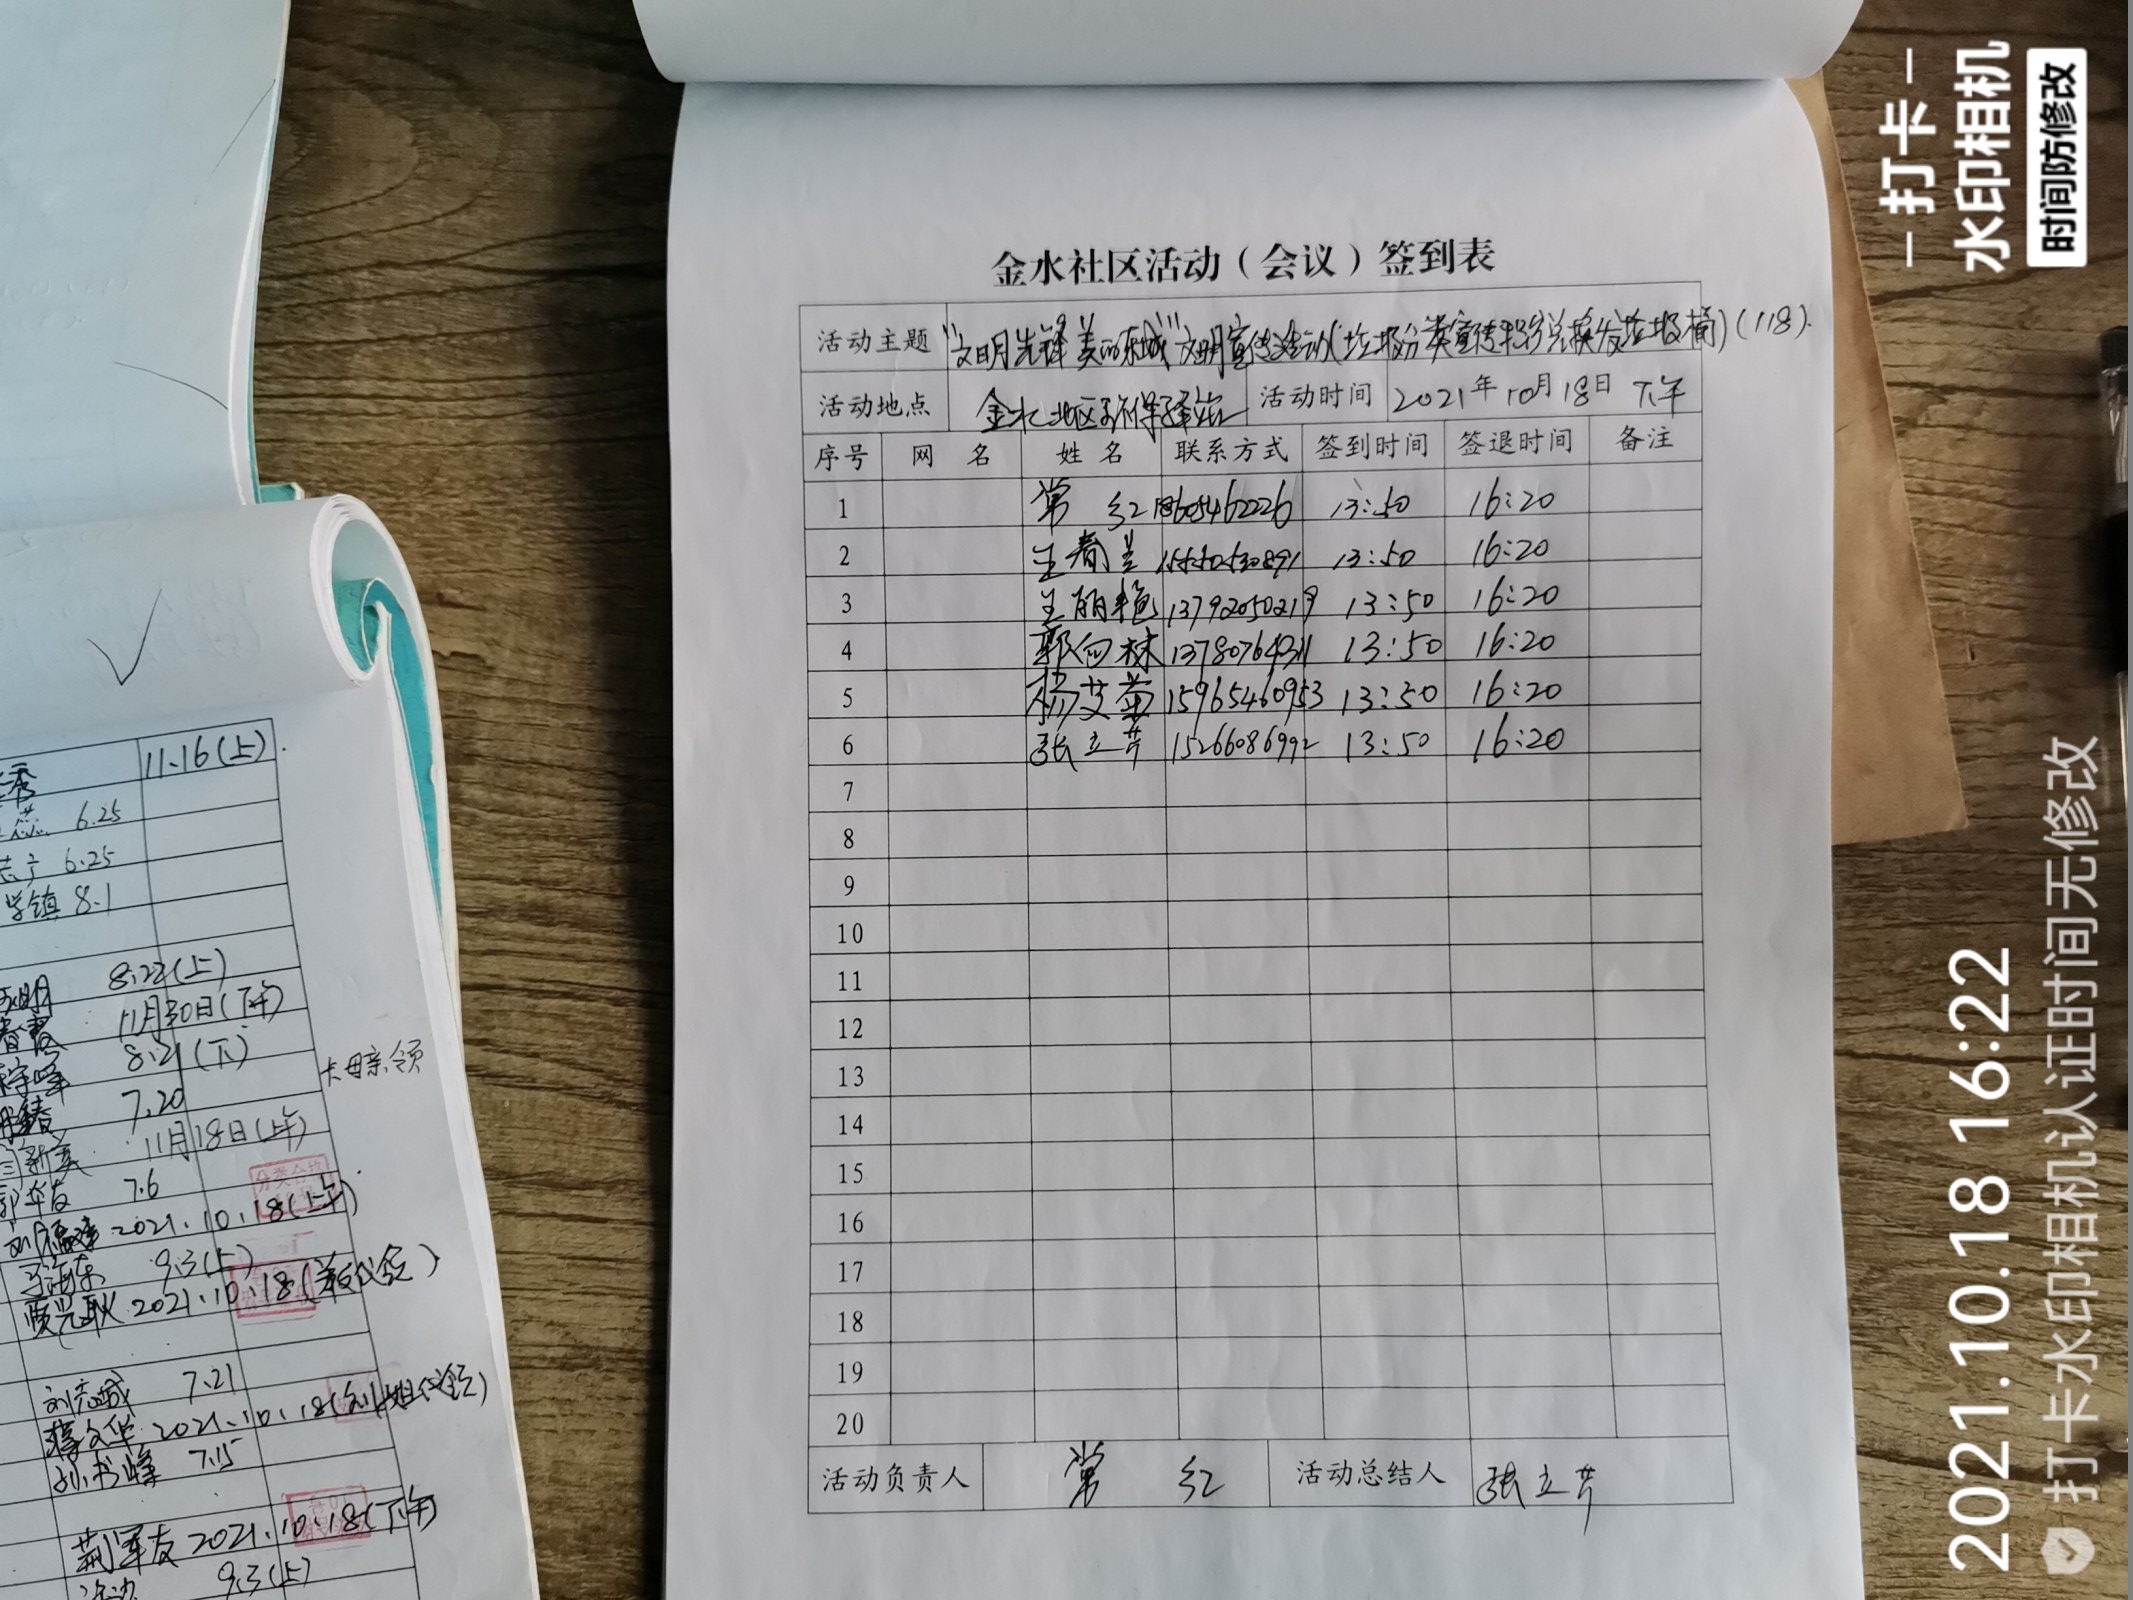 金水社区活动（会议）签到表
活动主题 "文明先锋 美丽东城"文明宣传活动(垃圾分类宣传积分兑换发垃圾桶)(118).
活动地点 金水社区环保驿站 活动时间 2021年10月18日 下午
序号 网 名 姓 名 联系方式 签到时间 签退时间 备注
1 常 红 18605462226 13:50 16:20
2 王春兰 13:50 16:20
3 王丽艳 13792050219 13:50 16:20
4 郭向林 13:50 16:20
5 杨艾菊 15965460953 13:50 16:20
6 张立芹 15266086992 13:50 16:20
7
8
9
10
11
12
13
14
15
16
17
18
19
20
活动负责人 常 红 活动总结人 张立芹
秀 11.16(上).
6.25
6.25
学镇 8.1
明 8.22(上)
11月30日(下午)
8.21(下)
卡母亲领
7.20
新美 11月18日(上午)
郭华友 7.6
2021.10.18(上午)
9.3(上)
2021.10.18
刘志城 7.21
蒋文华 2021.10.18
孙书峰 7.15
荆军友 2021.10.18(下午)
9.3(上)
打卡
水印相机
时间防修改
2021.10.18 16:22
打卡水印相机认证时间无修改